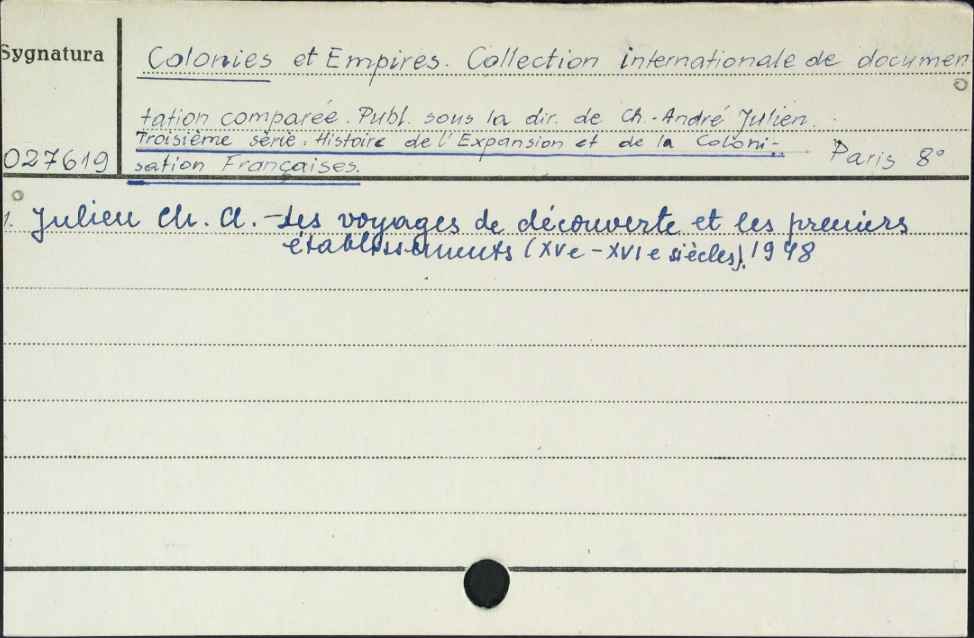 Sygnatura
Colonies et Empires. Collection internationale de documen
tation comparée. Publ. sous la dir. de Ch.-André Julien.
Troisième série. Histoire de l'Expansion et de la Coloni-
sation Françaises.
Paris 8°
027619
1. Julien Ch. A. - Les voyages de découverte et les premiers
établissements (XVe - XVIe siècles). 1948